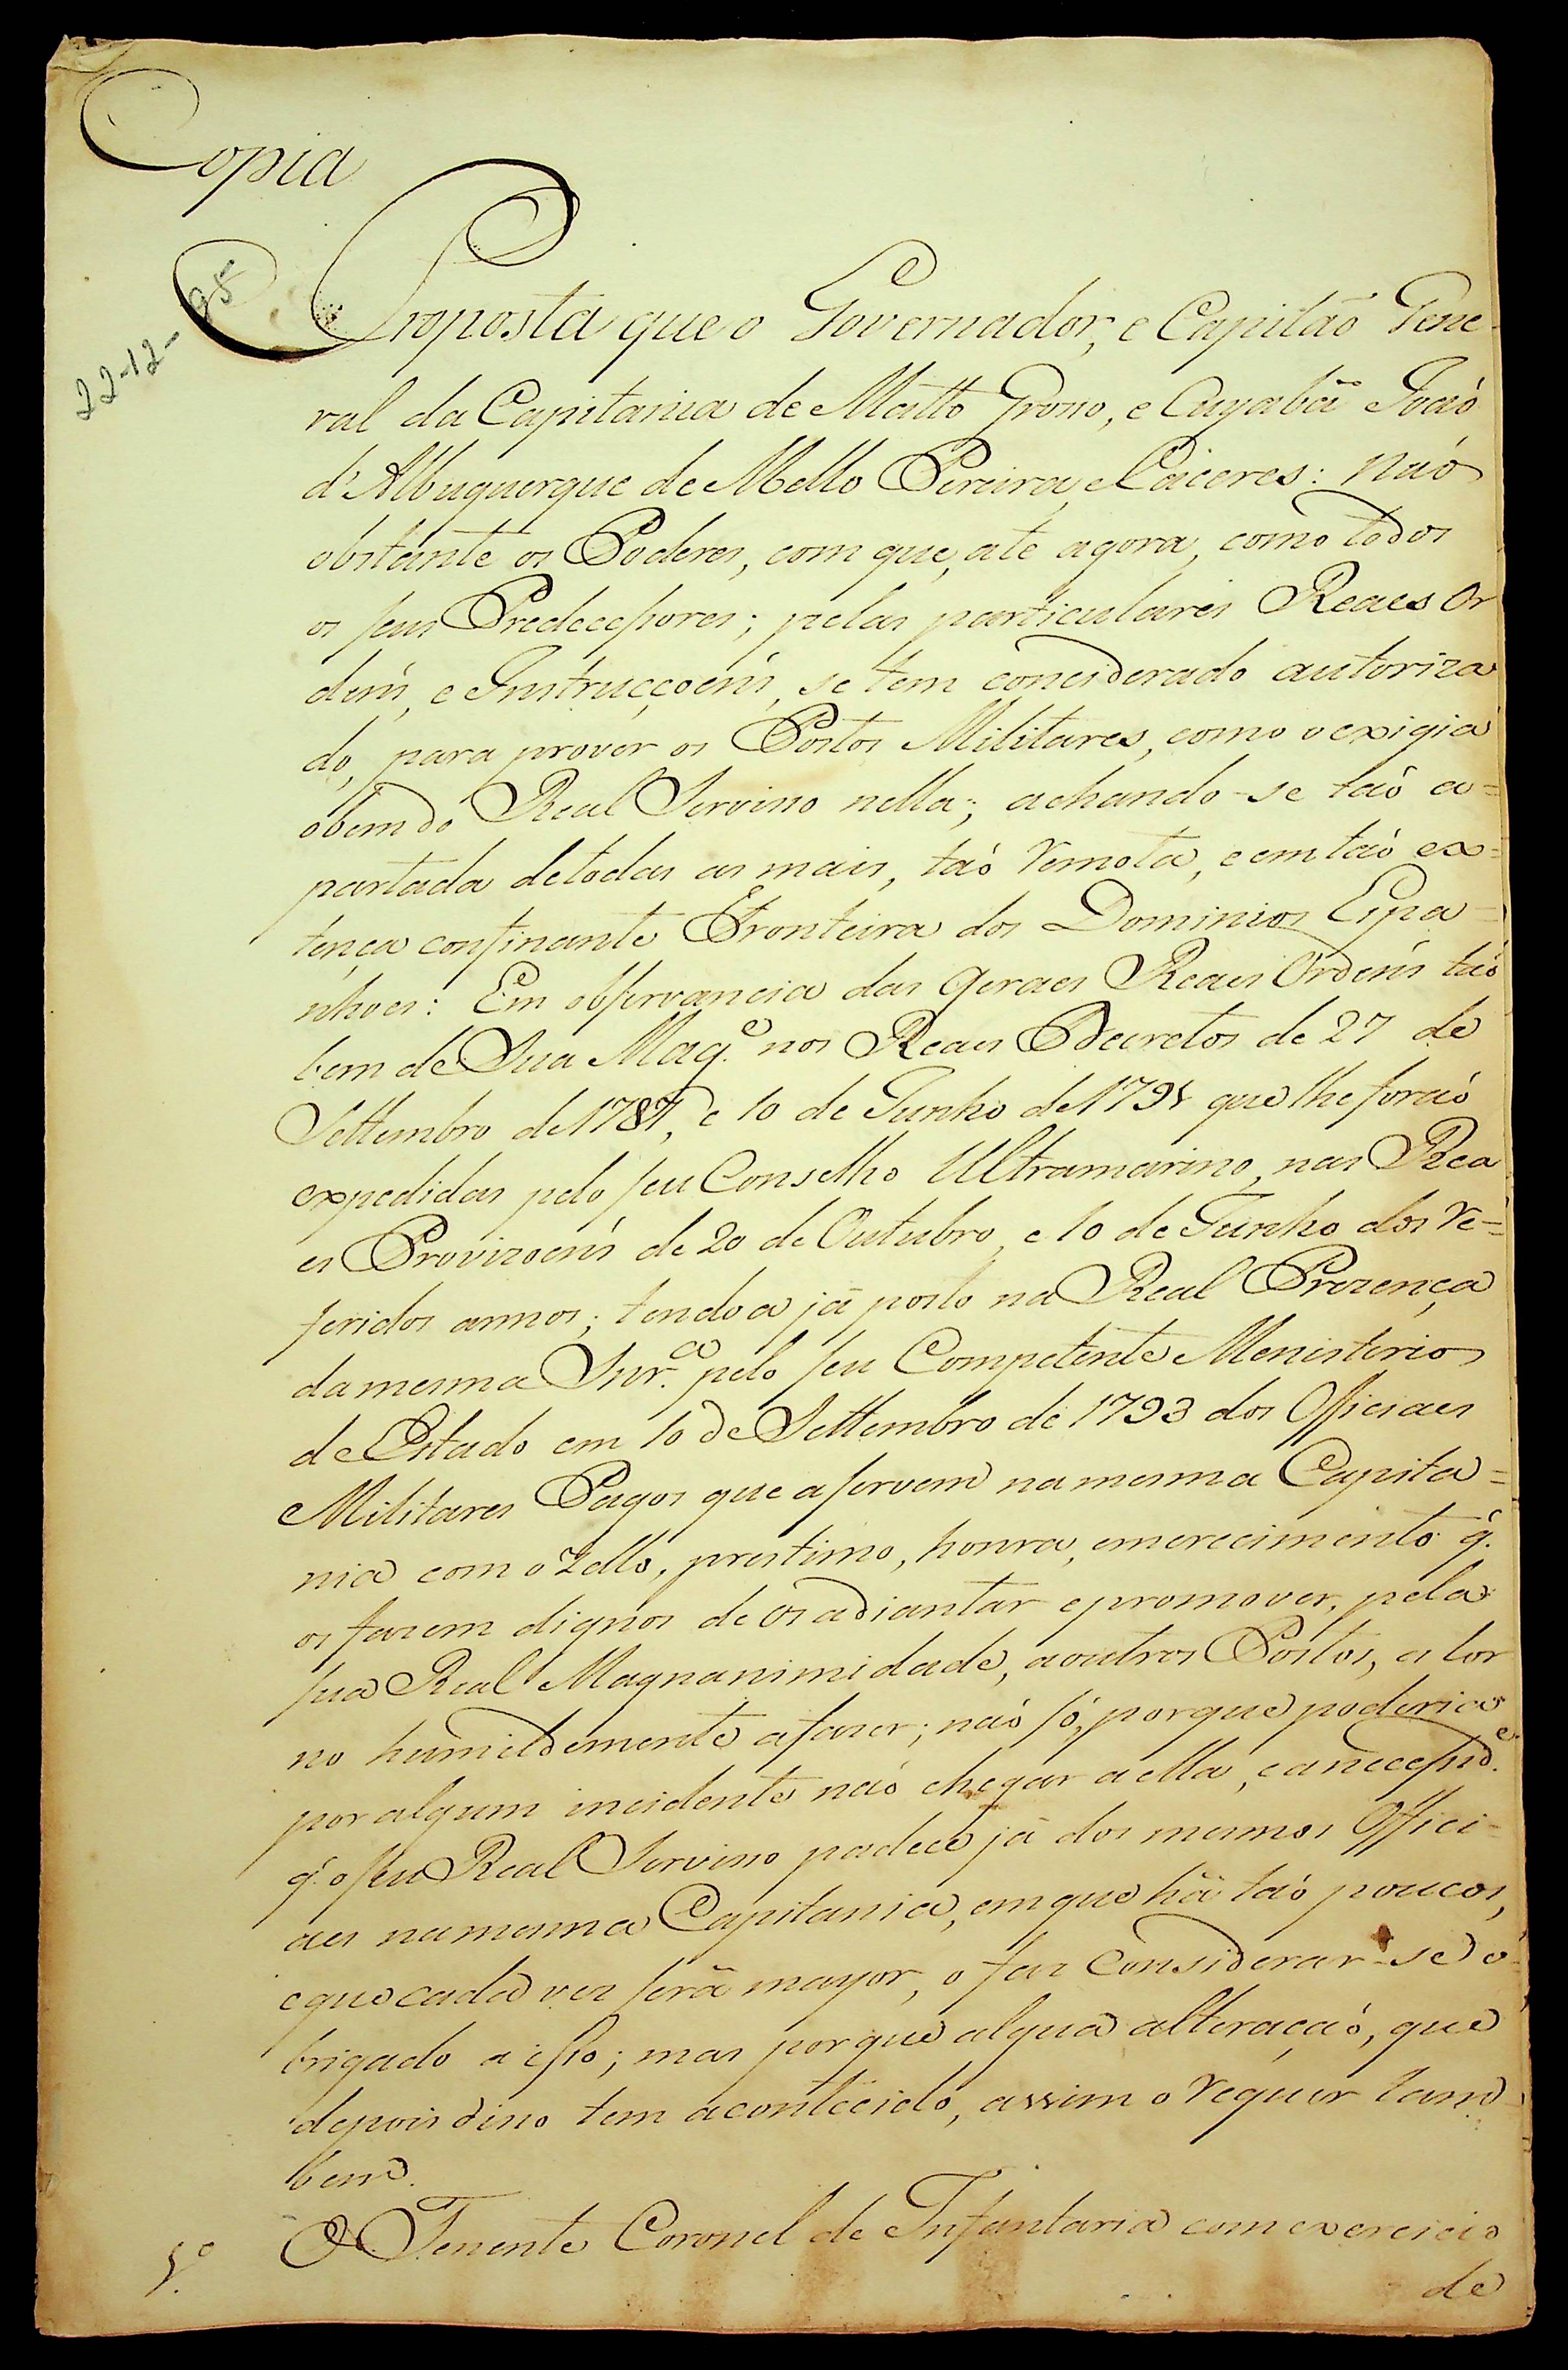 Copia
22-12-95
Proposta que o Governador, e Capitaõ Gene-
ral da Capitania de Matto Grosso, e Cuyabá Joaõ
d'Albuquerque de Mello Pereira, e Caceres: Naõ
obstante os Poderes, com que, ate agora, como todos
os seus Predecessores; pelas particulares Reaes Or
dens, e Instrucçoens, se tem considerado autoriza
do, para prover os Postos Militares, como o exigia
o bem do Real Serviso nella; achando-se taõ a=
partada de todas as mais, taõ remota, e em taõ ex=
tença confinante Fronteira dos Dominios Espa=
nhoes: Em observancia das geraes Reaes Ordens taõ
bem de Sua Mag.e nos Reaes Decretos de 27 de
Settembro de 1787, e 10 de Junho de 1791 que lhe foraõ
expedidas pelo seu Conselho Ultramarino, nas Rea
es Provizoens de 20 de Outubro, e 10 de Junho dos re=
feridos annos; tendo a já posto na Real Prezença
da mesma Snr.a pelo seu Competente Menisterio
de Estado em 10 de Settembro de 1793 dos Officiaes
Militares Pagos que a servem na mesma Capita=
nia com o Zello, prestimo, honra, e merecimento q.
os fazem dignos de os adiantar e promover, pela
sua Real Magnanimidade, a outros Postos, a tor
no humildemente a fazer; naõ só, porque poderia
por algum incidente naõ chegar a ella, e a necessid.e
q. o seu Real Serviso padece já dos mesmos Offici=
aes na mesma Capitania, em que há taõ poucos,
e que cada vez será mayor, o faz considerar-se o-
brigado a isso; mas porque algua alteraçaõ, que
depois diso tem acontecido, assim o requer tam
bem.
1.º O Tenente Coronel de Infantaria com exercicio
de